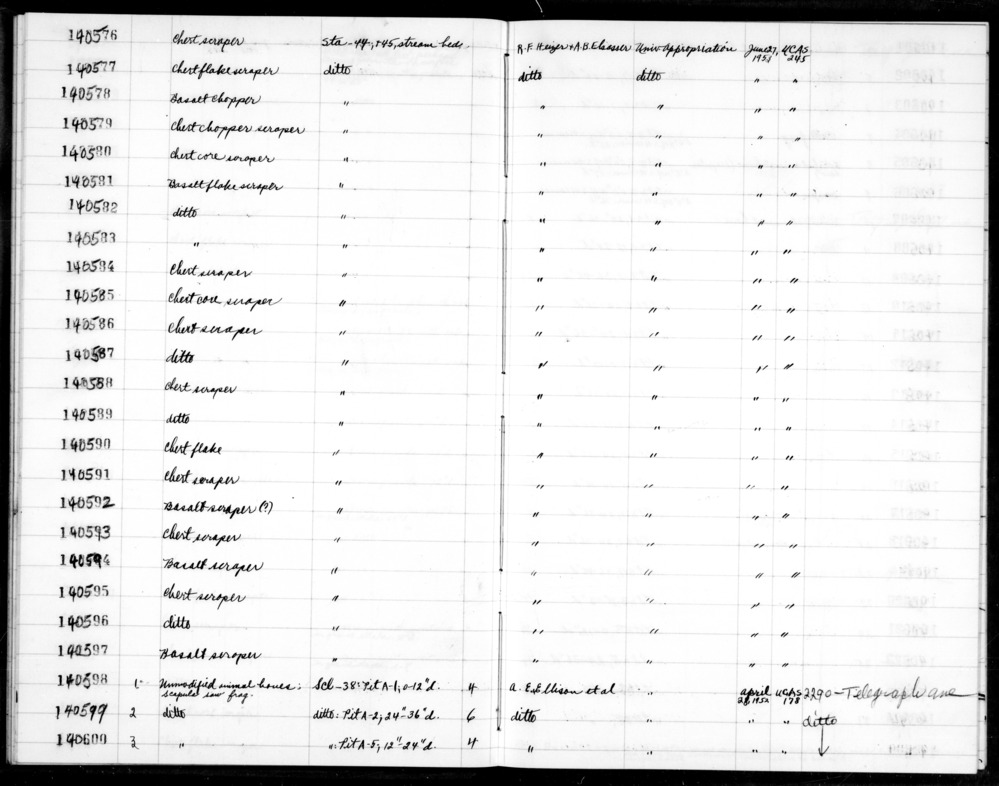 140576 Chert scraper Sta-44, +45, stream beds R.F. Heizer + A.B. Elsasser Univ. Appropriation June 27, 1951 UCAS 245
140577 Chert flake scraper ditto ditto ditto " "
140578 Basalt chopper " " " " "
140579 Chert chopper scraper " " " " "
140580 Chert core scraper " " " " "
140581 Basalt flake scraper " " " " "
140582 ditto " " " " "
140583 " " " " " "
140584 Chert scraper " " " " "
140585 Chert core scraper " " " " "
140586 Chert scraper " " " " "
140587 ditto " " " " "
140588 Chert scraper " " " " "
140589 ditto " " " " "
140590 Chert flake " " " " "
140591 Chert scraper " " " " "
140592 Basalt scraper (?) " " " " "
140593 Chert scraper " " " " "
140594 Basalt scraper " " " " "
140595 Chert scraper " " " " "
140596 ditto " " " " "
140597 Basalt scraper " " " " "
140598 1 Unmodified animal bones; Scl-38: Pit A-1; 0-12" d. 4 A. E. Ellison et al " April 28, 1952 UCAS 178 2290-Telegraph ave
scapula saw frag.
140599 2 ditto ditto: Pit A-2; 24"-36" d. 6 ditto " " " ditto
140600 3 " ": Pit A-5; 12"-24" d. 4 " " " "